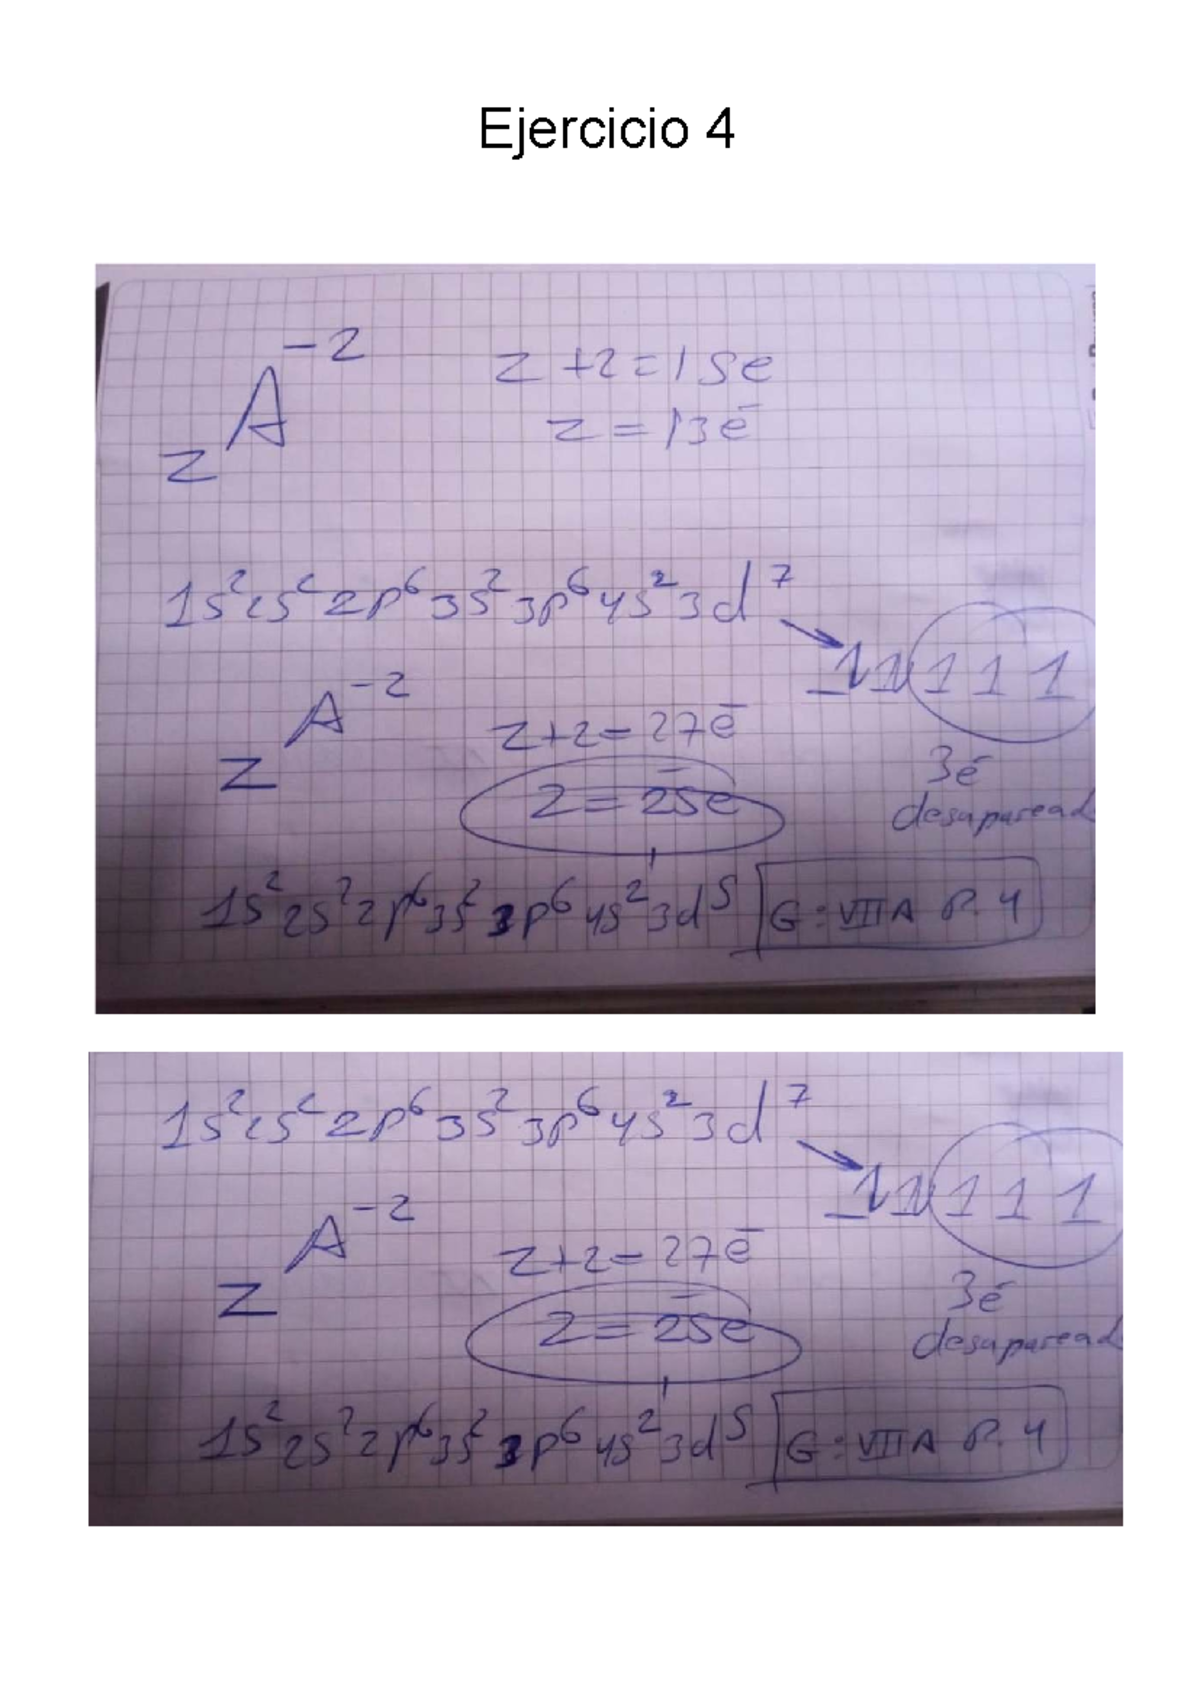 Ejercicio 4
A⁻²
Z
Z+2=15e
Z=13e̅
1s²2s²2p⁶3s²3p⁶4s²3d⁷
1 1 1
A⁻²
Z
Z+2=27e̅
Z=25e̅
3e̅
desaparead
1s²2s²2p⁶3s²3p⁶4s²3d⁵ G:VIIA P.4
1s²2s²2p⁶3s²3p⁶4s²3d⁷
1 1 1
A⁻²
Z
Z+2=27e̅
Z=25e̅
3e̅
desaparead
1s²2s²2p⁶3s²3p⁶4s²3d⁵ G:VIIA P.4